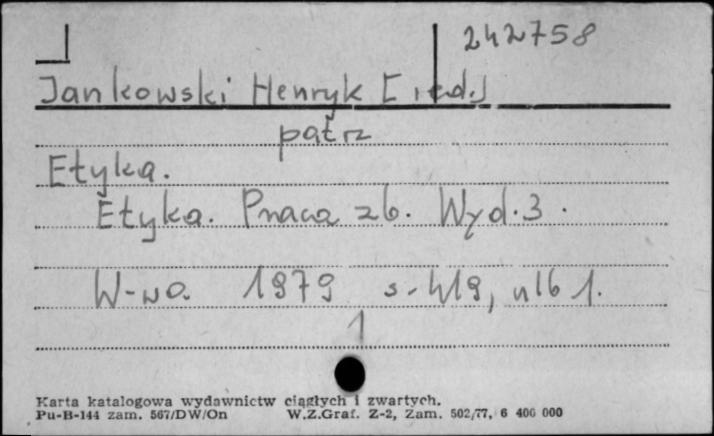 242758
Jankowski Henryk [red.]
patrz
Etyka.
Etyka. Praca zb. Wyd. 3.
W-wa 1979 s. 419, nlb 1.
1
Karta katalogowa wydawnictw ciągłych i zwartych.
Pu-B-144 zam. 567/DW/On W.Z.Graf. Z-2, Zam. 502/77, 6 400 000